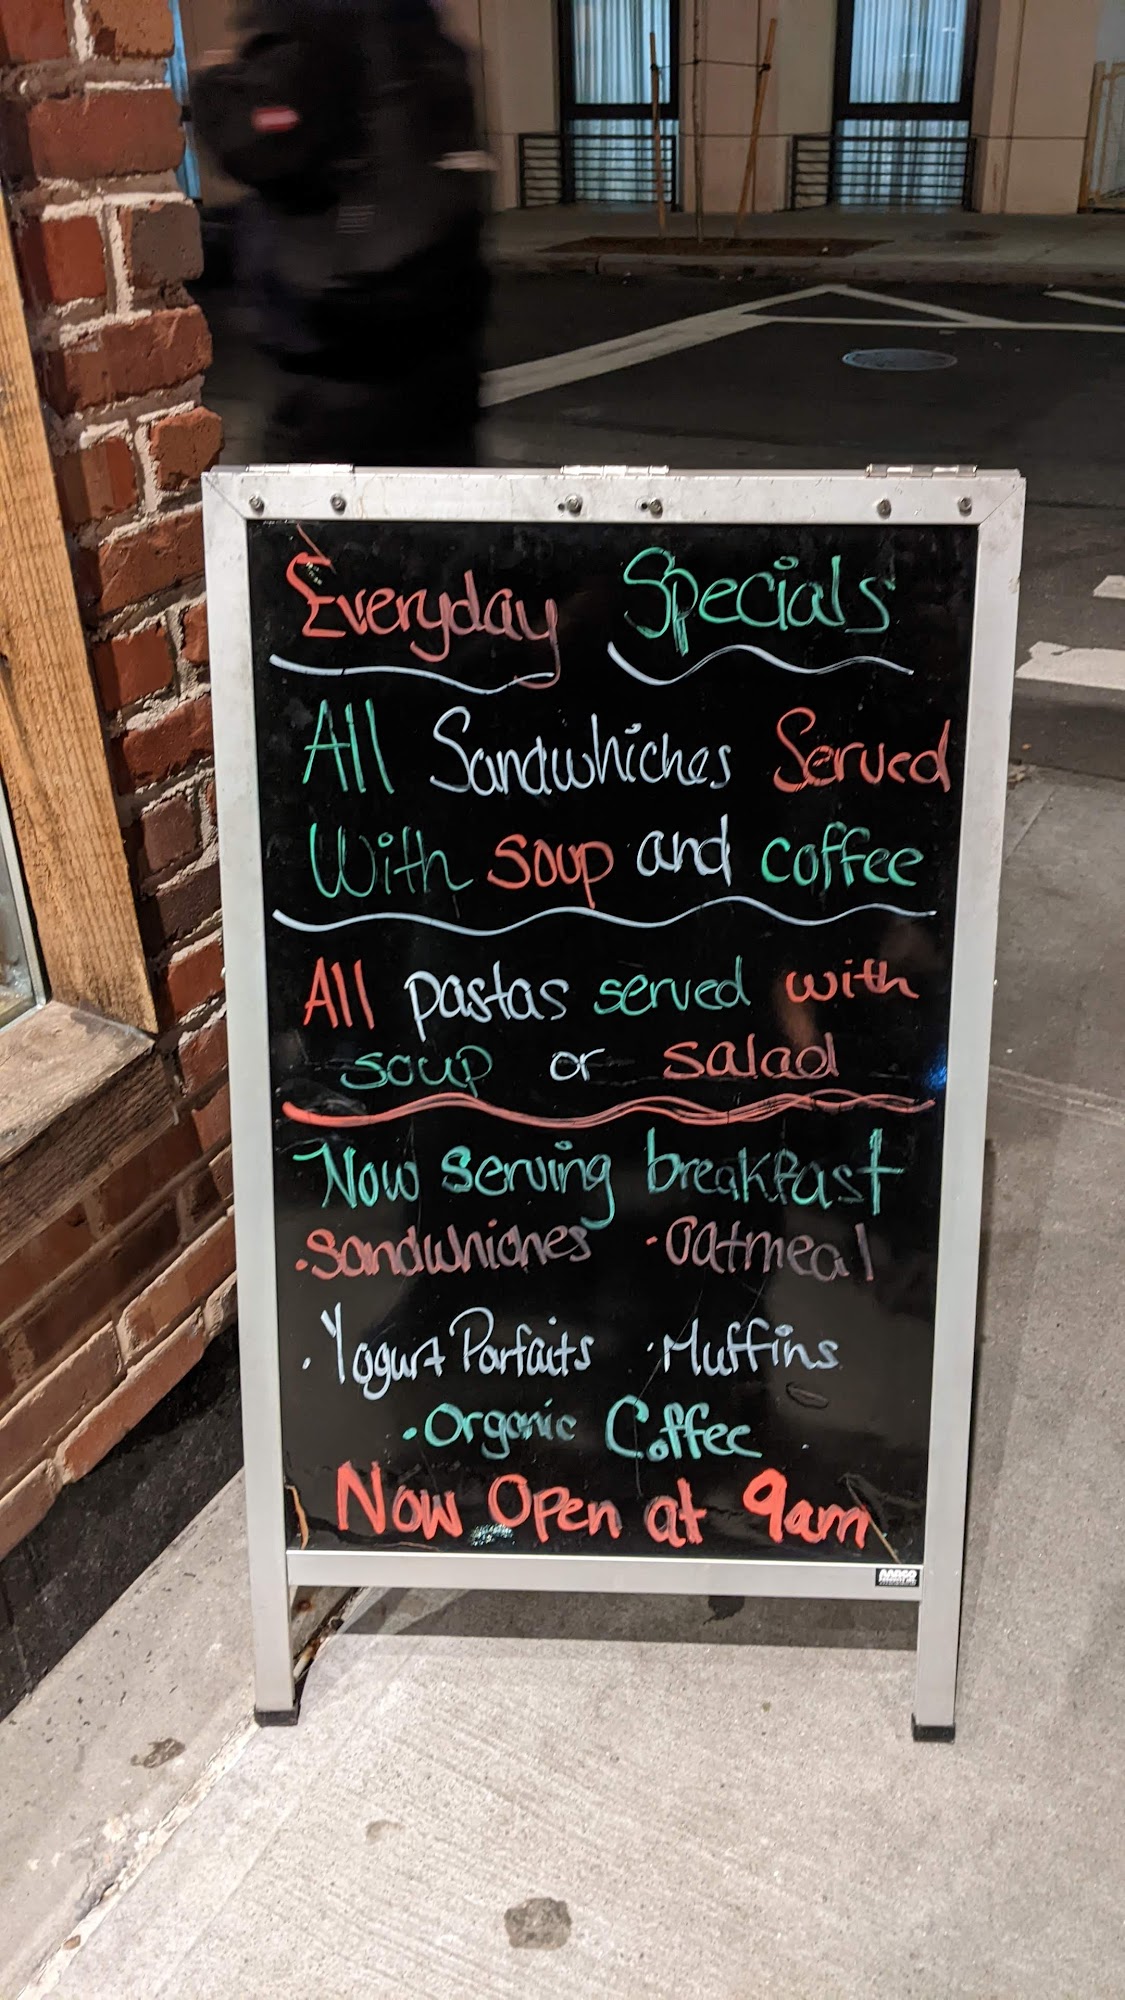 Everyday Specials
All Sandwhiches Served
With soup and coffee
All pastas served with
soup or salad
Now Serving breakfast
·Sandwhiches ·Oatmeal
·Yogurt Parfaits ·Muffins
·Organic Coffee
Now Open at 9am
AARCO